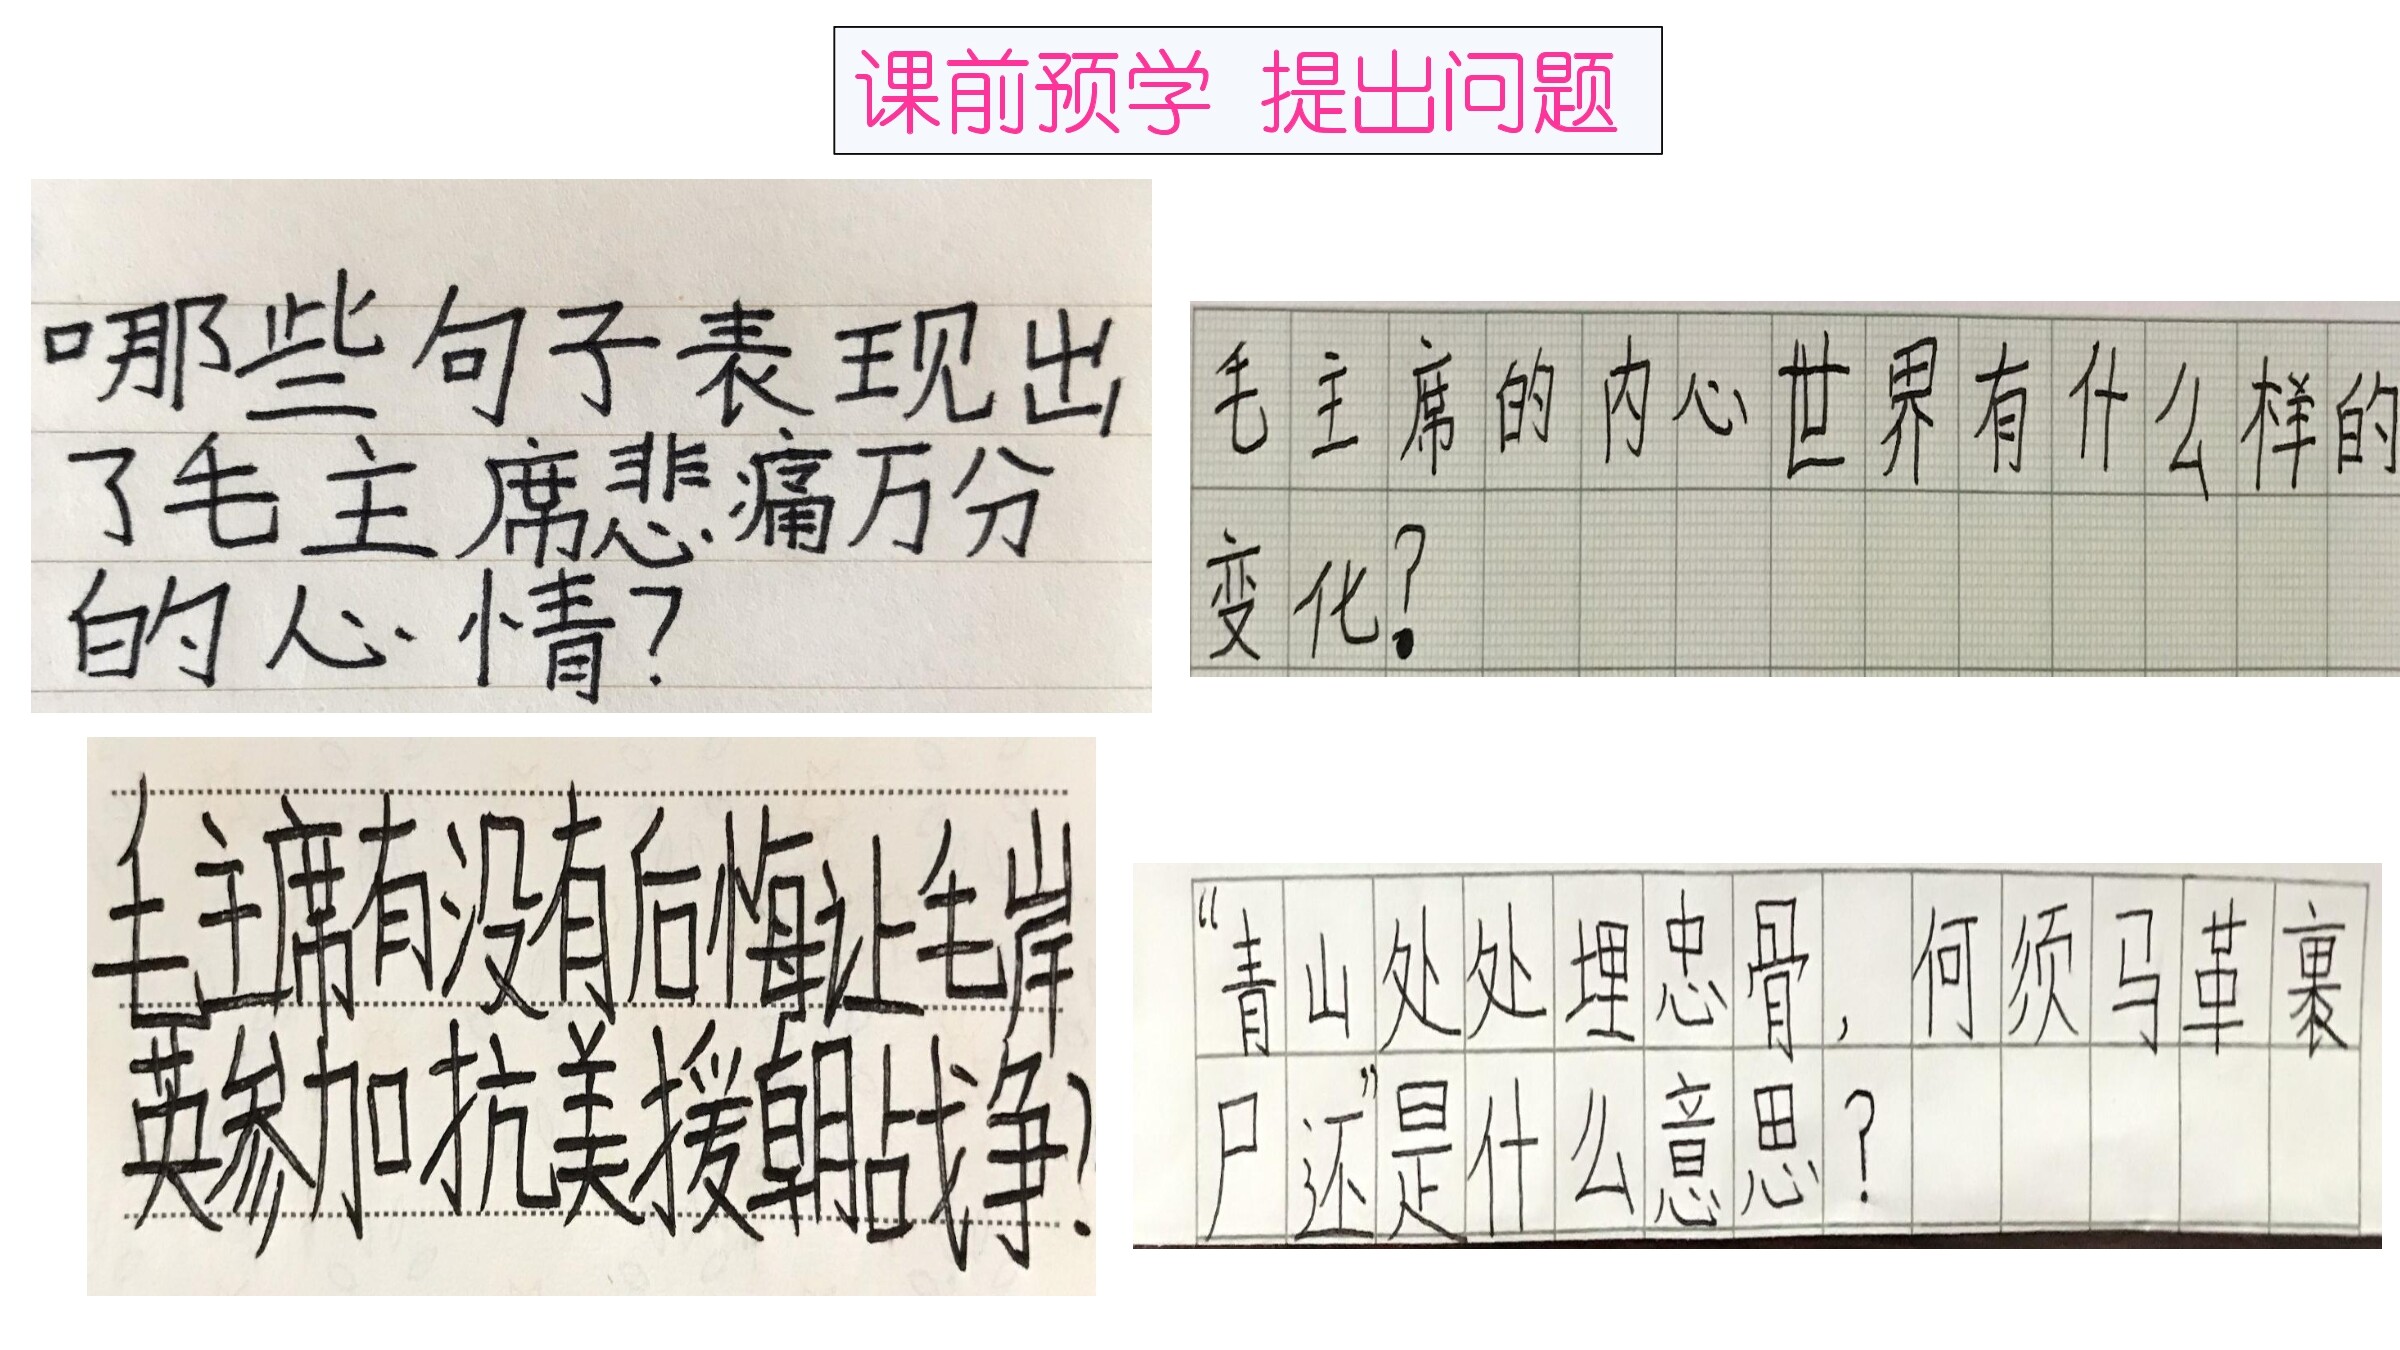 课前预学 提出问题
哪些句子表现出
了毛主席悲痛万分
的心情？
毛主席的内心世界有什么样的
变化？
毛主席有没有后悔让毛岸
英参加抗美援朝战争？
“青山处处埋忠骨，何须马革裹
尸还”是什么意思？